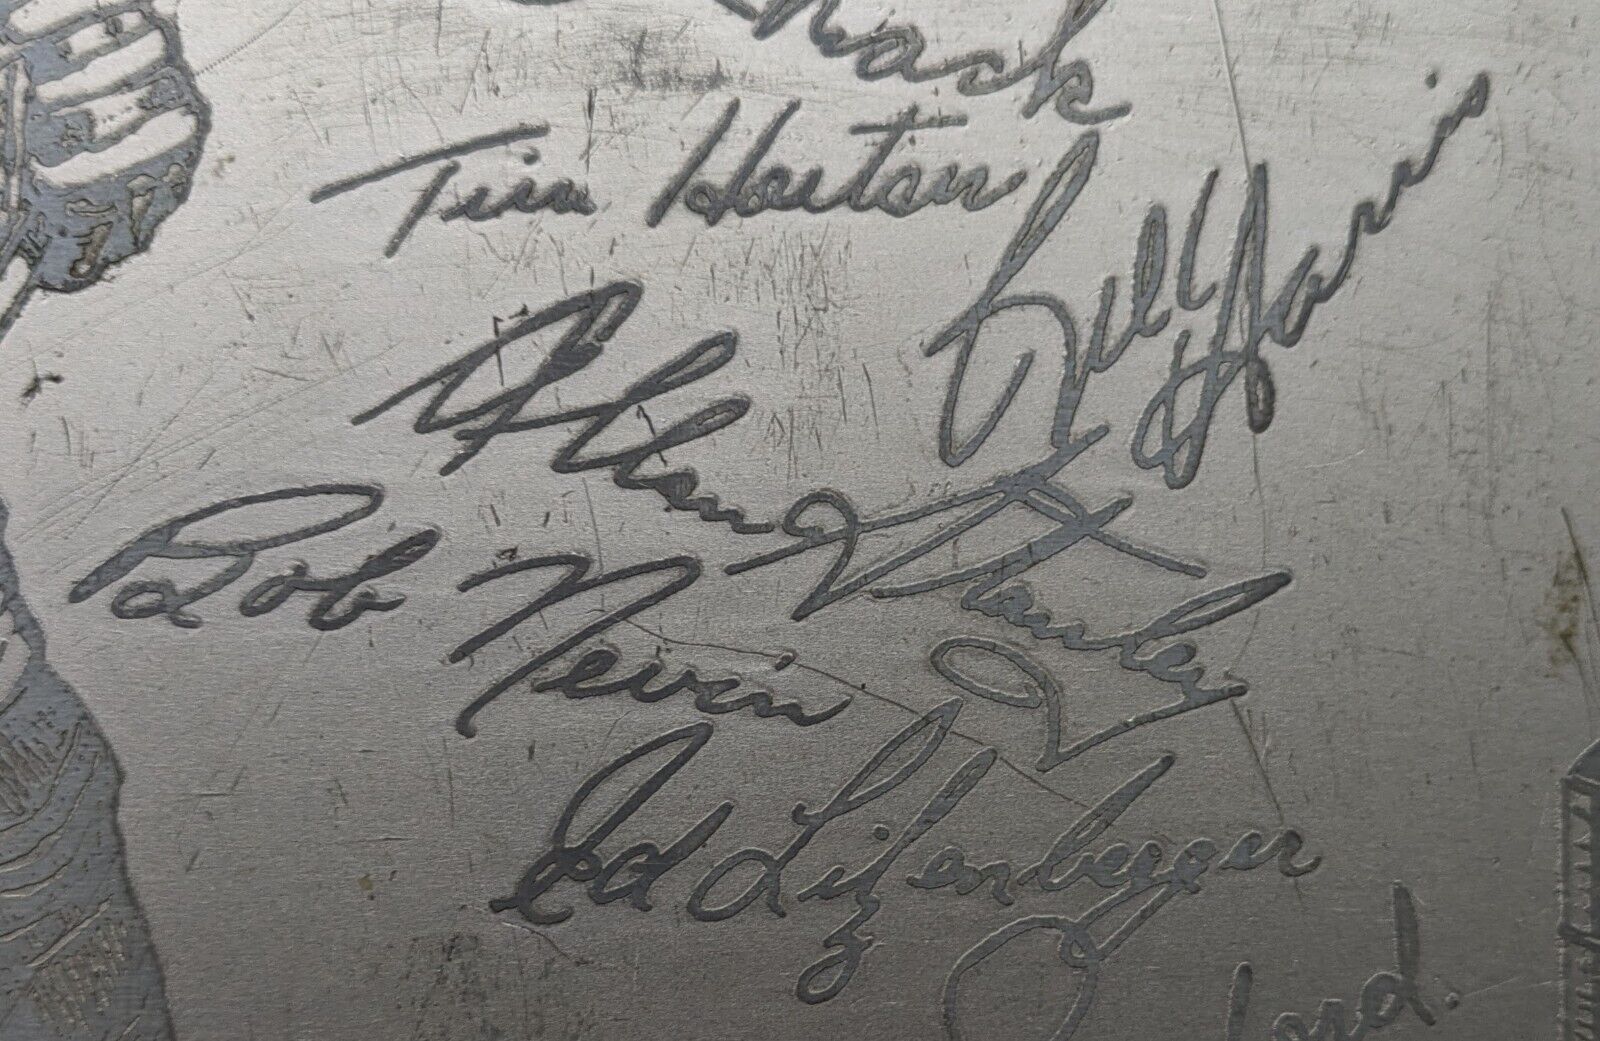 Shack
Tim Horton
Bill Harris
Allan Stanley
Bob Nevin
Ed Litzenberger